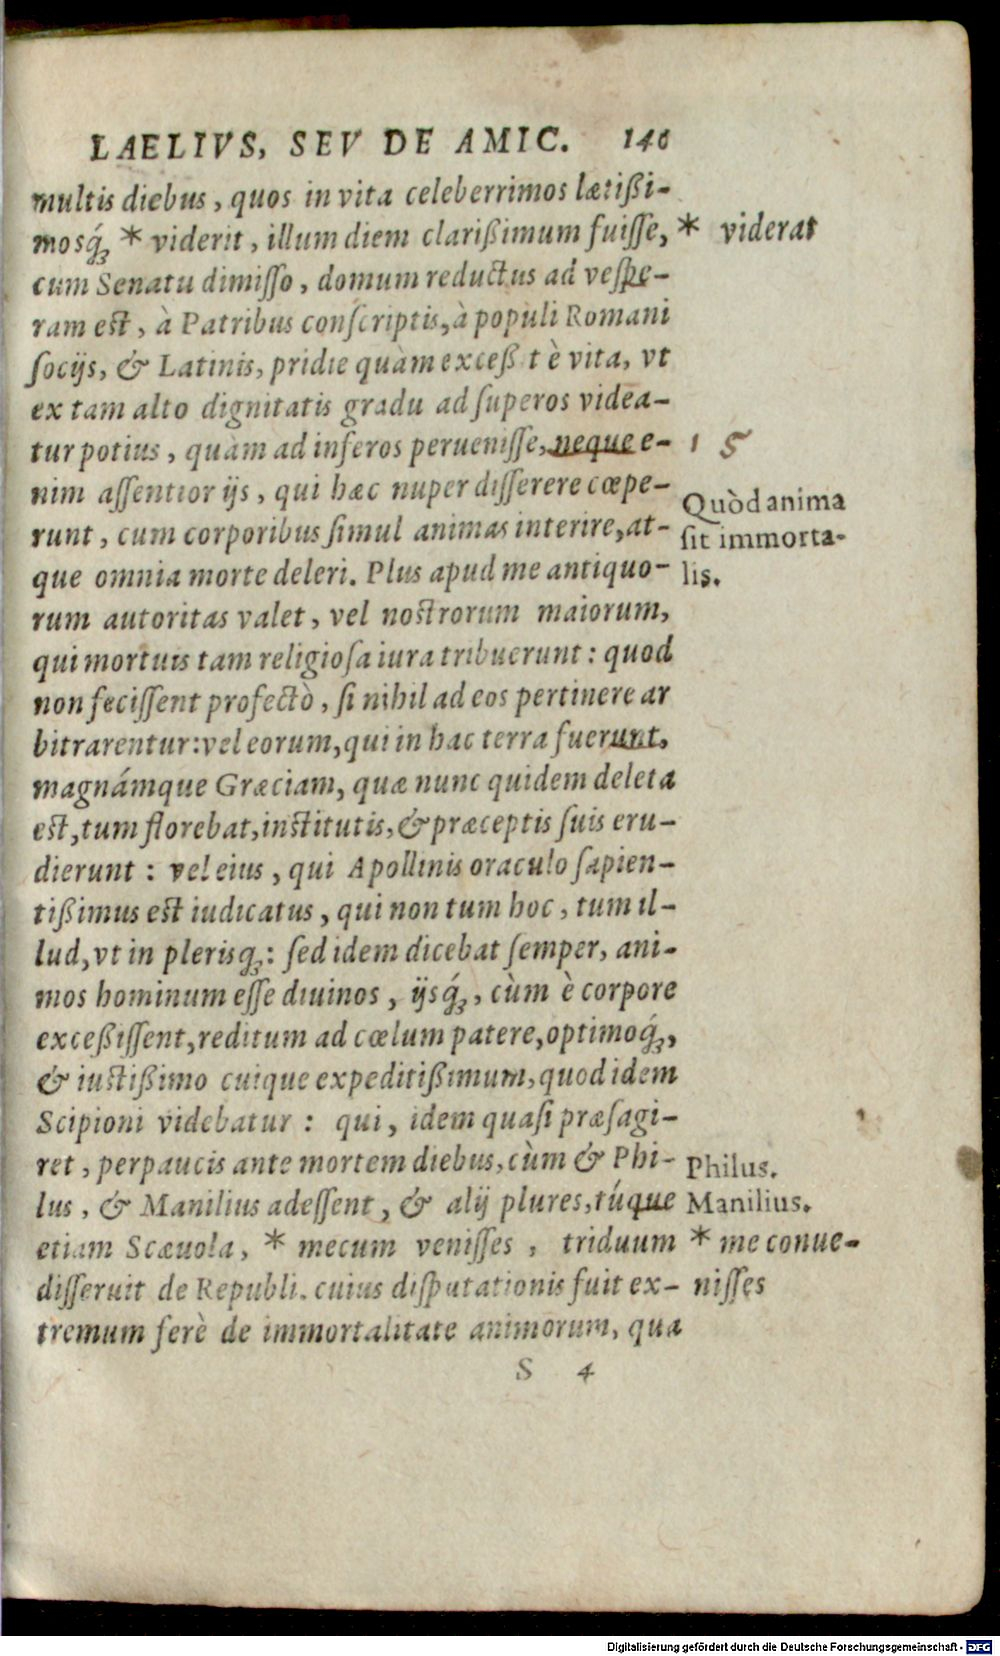 LAELIVS, SEV DE AMIC. 140
multis diebus, quos in vita celeberrimos lætißi-
mosq́ꝫ * viderit, illum diem clarißimum fuiſſe, * viderat
cum Senatu dimiſſo, domum reductus ad veſpe-
ram est, à Patribus conſcriptis, à populi Romani
ſocijs, & Latinis, pridie quàm exceß t è vita, vt
ex tam alto dignitatis gradu ad ſuperos videa-
tur potius, quàm ad inferos perueniſſe, neque e- 1 5
nim aſſentior ijs, qui hæc nuper diſſerere cœpe-
Quòd anima
runt, cum corporibus ſimul animas interire, at-
ſit immorta-
que omnia morte deleri. Plus apud me antiquo-
lis.
rum autoritas valet, vel nostrorum maiorum,
qui mortuis tam religioſa iura tribuerunt: quod
non feciſſent profectò, ſi nihil ad eos pertinere ar
bitrarentur: vel eorum, qui in hac terra fuerunt,
magnámque Græciam, quæ nunc quidem deleta
est, tum florebat, institutis, & præceptis ſuis eru-
dierunt: vel eius, qui Apollinis oraculo ſapien-
tißimus est iudicatus, qui non tum hoc, tum il-
lud, vt in plerisqꝫ: ſed idem dicebat ſemper, ani-
mos hominum eſſe diuinos, ijsq́ꝫ, cùm è corpore
exceßiſſent, reditum ad cœlum patere, optimoq́ꝫ,
& iustißimo cuique expeditißimum, quod idem
Scipioni videbatur: qui, idem quaſi præſagi-
ret, perpaucis ante mortem diebus, cùm & Phi-
Philus.
lus, & Manilius adeſſent, & alij plures, túque
Manilius.
etiam Scæuola, * mecum veniſſes, triduum * me conue-
diſſeruit de Republi. cuius diſputationis fuit ex- niſſes
tremum ferè de immortalitate animorum, qua
S 4
Digitalisierung gefördert durch die Deutsche Forschungsgemeinschaft - DFG